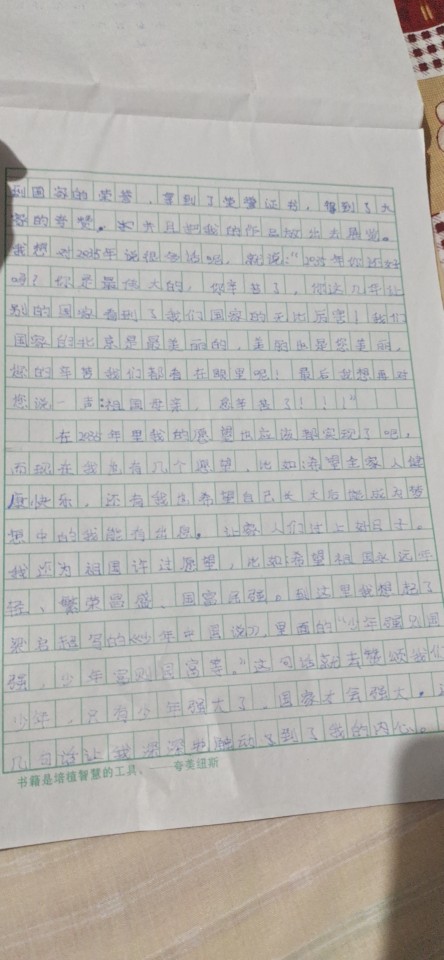 到国家的荣誉，拿到了荣誉证书，得到了大
家的夸赞。并且把我的作品放出去展览。
我想对2035年说很多话呢，就说："2035年你还好
吗？你是最伟大的，你辛苦了，你这几年让
别的国家看到了我们国家的无比厉害！我们
国家的北京是最美丽的，美的也是您美丽，
您的辛苦我们都看在眼里呢！最后我想再对
您说一声：祖国母亲，您辛苦了！！！"
在2035年里我的愿望也应该都实现了吧，
而现在我也有几个愿望，比如：希望全家人健
康快乐，还有我也希望自己长大后能成为梦
想中的我能有出息。让家人们过上好日子。
我还为祖国许过愿望，比如：希望祖国永远年
轻、繁荣昌盛、国富民强。到这里我想起了
梁启超写的《少年中国说》，里面的"少年强则国
强，少年富则国富等。"这句话就去赞颂我们
少年，只有少年强大了，国家才会强大。
几句话让我深深地触动了到了我的内心。
书籍是培植智慧的工具。——夸美纽斯